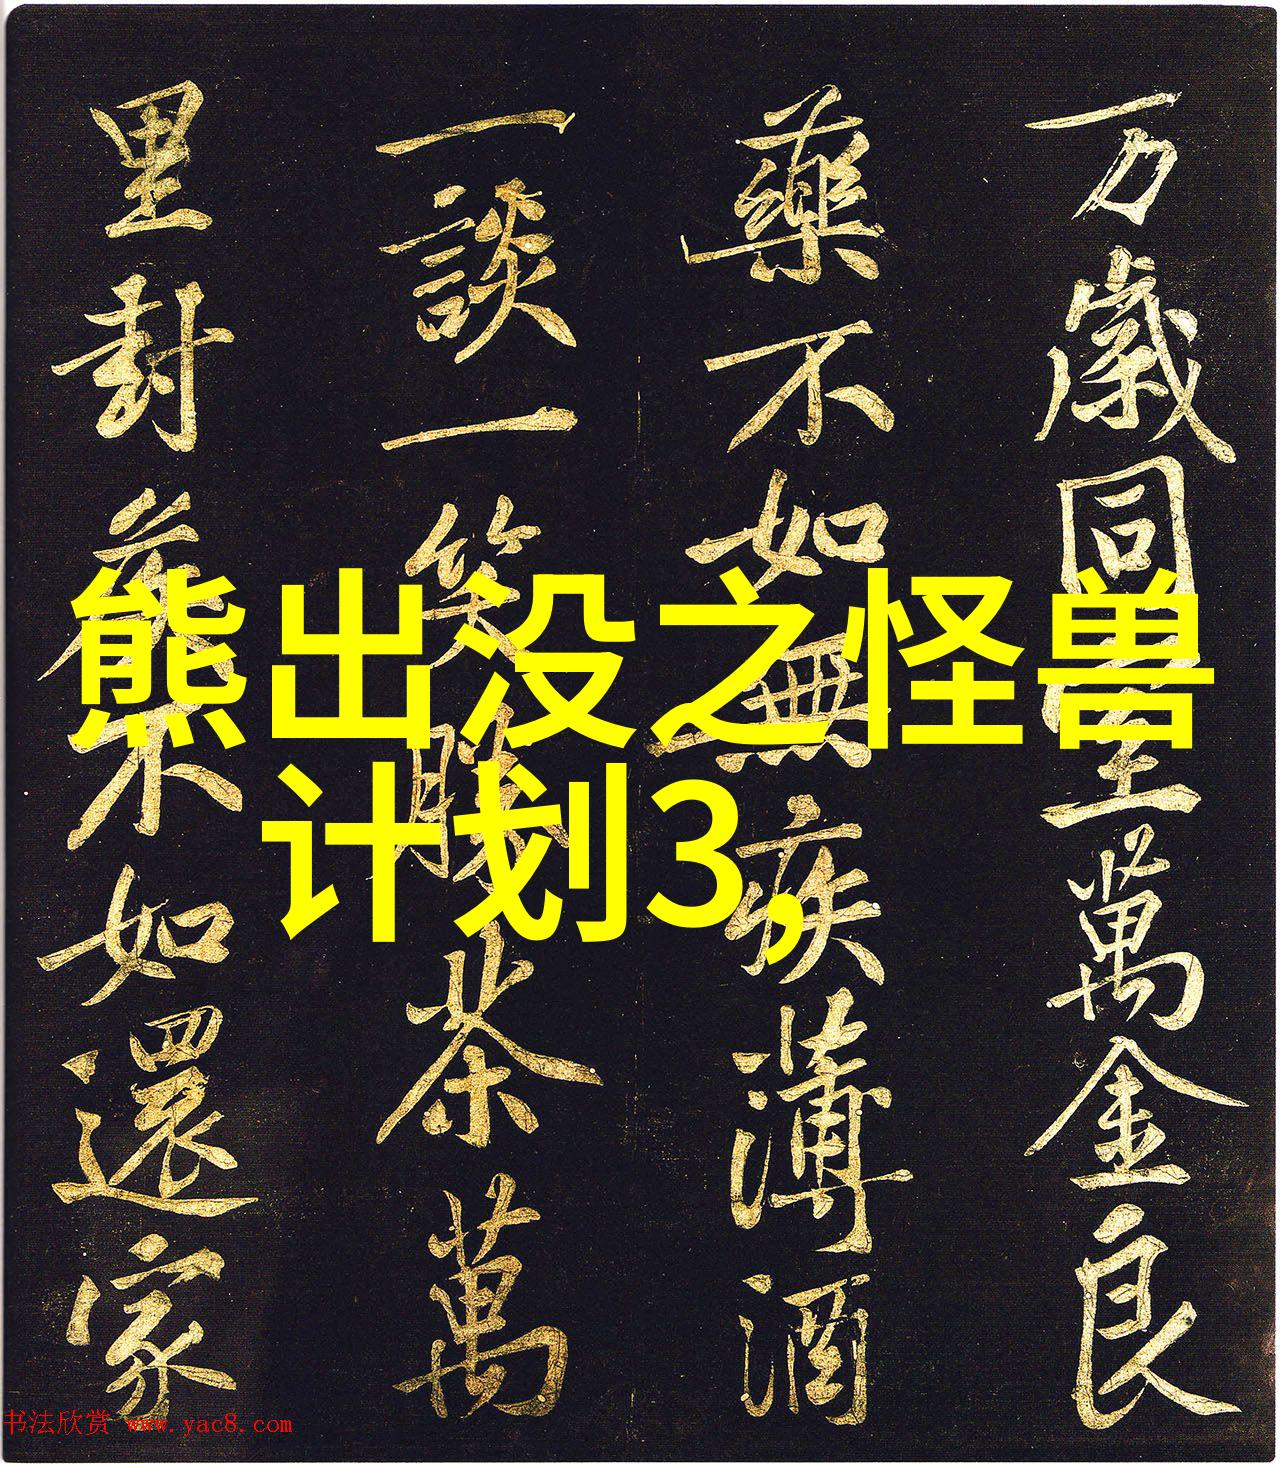 万歲同至萬金良
藥不如無疾薄酒
一談一笑勝茶萬
里封矦不如還家
熊出没之怪兽
计划3,
书法欣赏 www.yac8.com